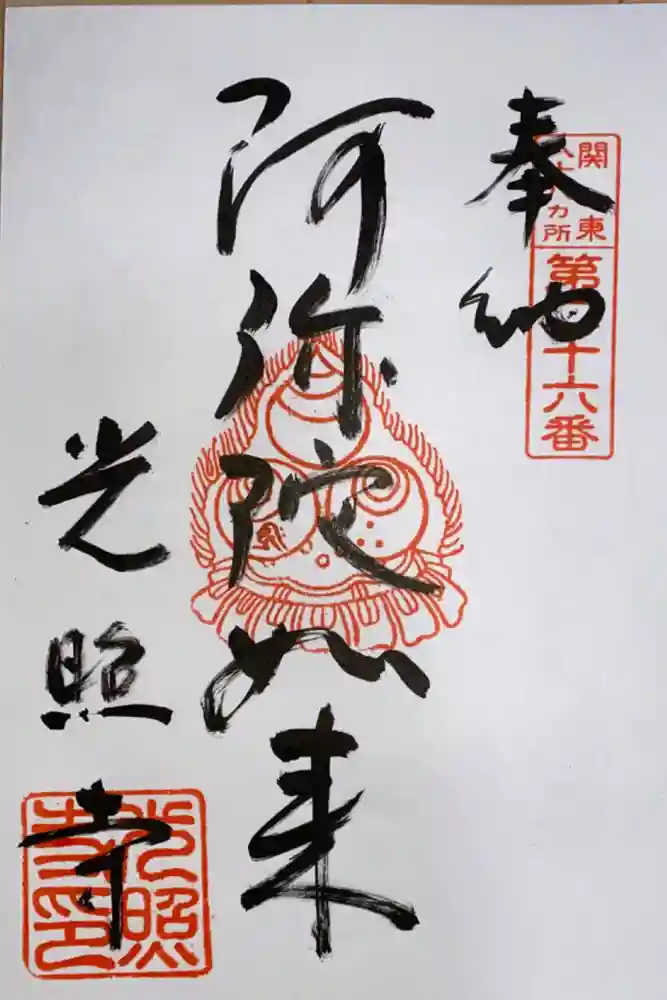 奉納
関東
八十八カ所
第 十六番
阿弥陀如来
光照寺
光照寺印